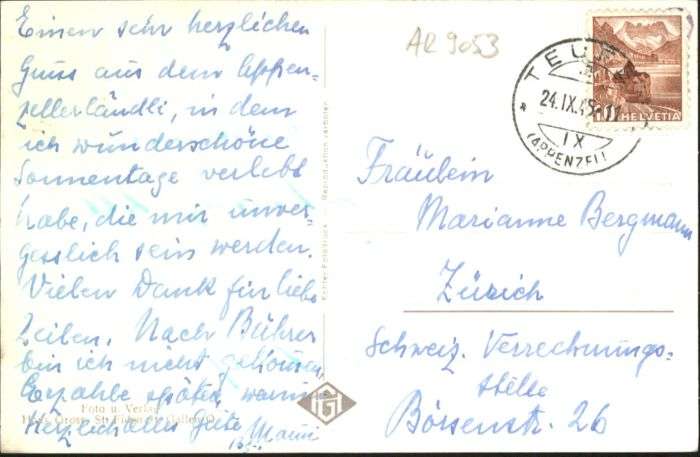 Einen sehr herzlichen
Gruss aus dem Appen-
zellerländli, in dem
ich wunderschöne
Sonnentage verlebt
habe, die mir unver-
gesslich sein werden.
Vielen Dank für liebe
Zeilen. Nach Bührer
bin ich nicht gekommen
Erzähle später, warum
Herzlich alles Gute
Foto u. Verlag
Hans Gross, St. Gallen
AR 9053
TEUF
24.IX.45-11
IX
(APPENZELL
10 HELVETIA
Fräulein
Marianne Bergmann
Zürich
Schweiz. Verrechnungs-
stelle
Börsenstr. 26